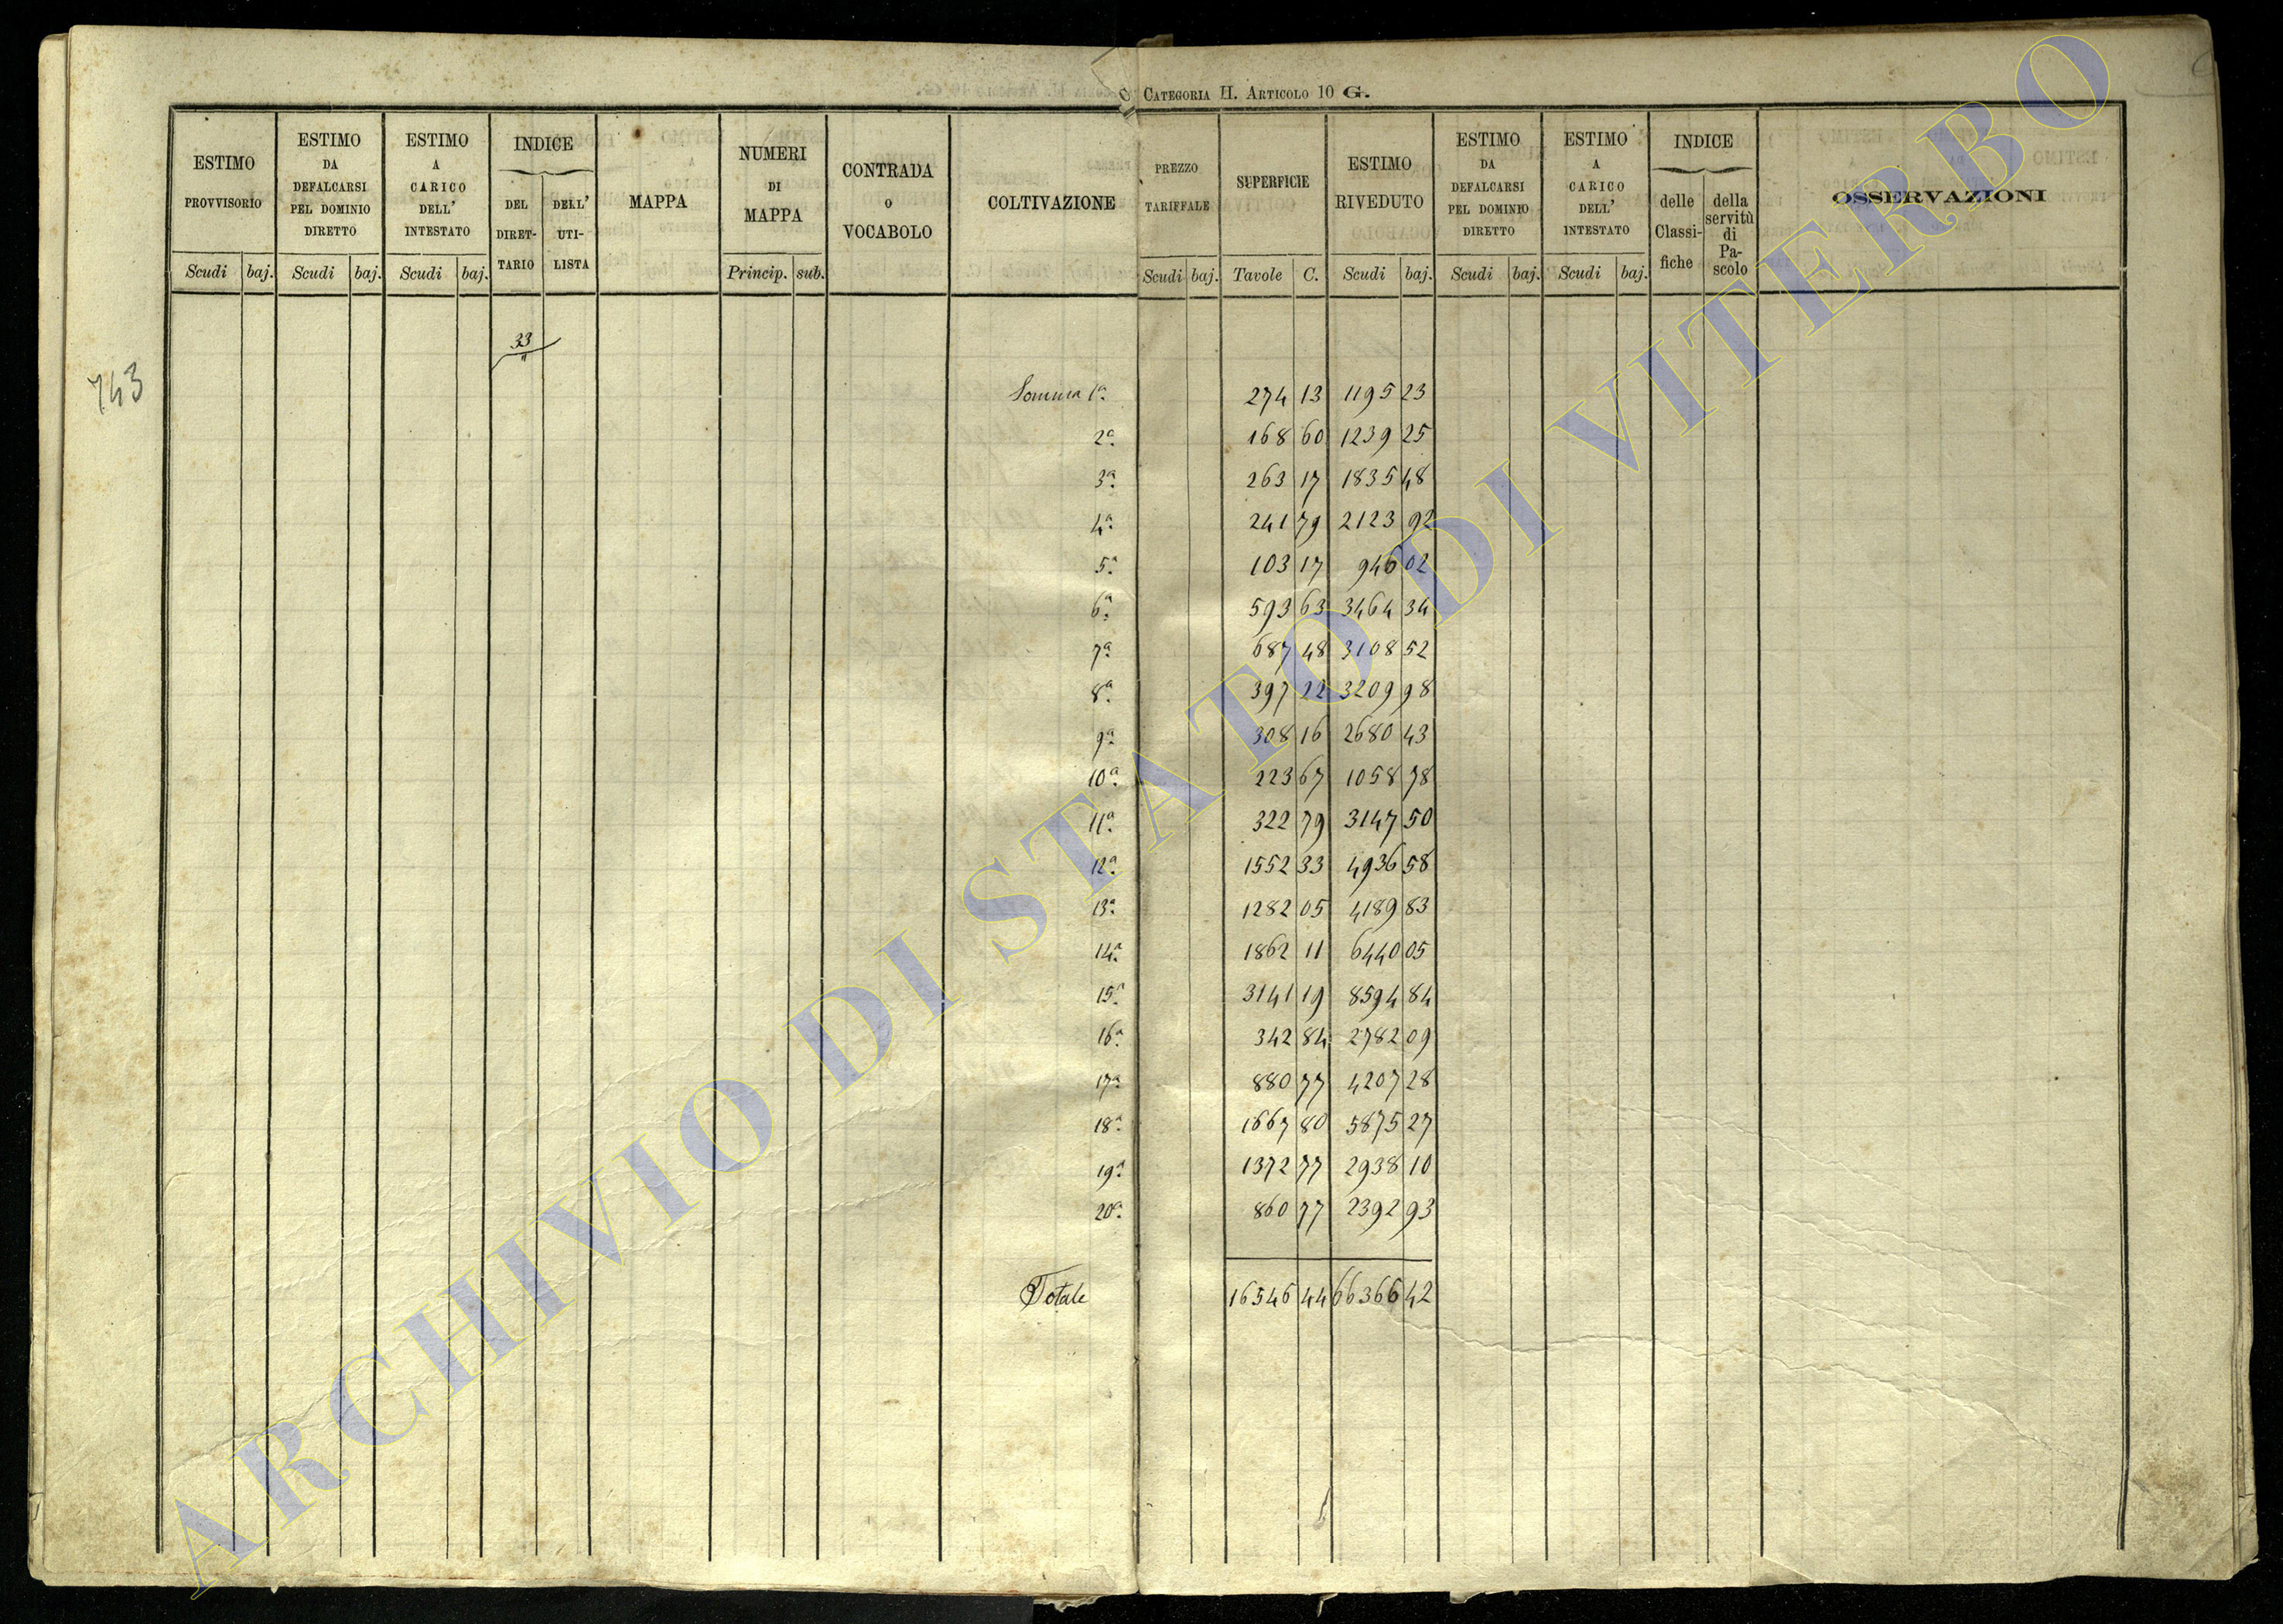 Categoria II. Articolo 10 G.
ESTIMO PROVVISORIO Scudi baj.
ESTIMO DA DEFALCARSI PEL DOMINIO DIRETTO Scudi baj.
ESTIMO A CARICO DELL' INTESTATO Scudi baj.
INDICE DEL DIRET-TARIO DELL' UTI-LISTA
MAPPA
NUMERI DI MAPPA Princip. sub.
CONTRADA O VOCABOLO
COLTIVAZIONE
PREZZO TARIFFALE Scudi baj.
SUPERFICIE Tavole C.
ESTIMO RIVEDUTO Scudi baj.
ESTIMO DA DEFALCARSI PEL DOMINIO DIRETTO Scudi baj.
ESTIMO A CARICO DELL' INTESTATO Scudi baj.
INDICE delle Classi-fiche della servitù di Pa-scolo
OSSERVAZIONI
33
"
743
Somma 1ª 274 13 1195 23
2ª 168 60 1239 25
3ª 263 17 1835 48
4ª 241 79 2123 92
5ª 103 17 946 02
6ª 593 63 3464 34
7ª 687 48 3108 52
8ª 397 22 3209 98
9ª 308 16 2680 43
10ª 223 67 1058 78
11ª 322 79 3147 50
12ª 1552 33 4936 58
13ª 1282 05 4189 83
14ª 1862 11 6440 05
15ª 3141 19 8594 84
16ª 342 84 2782 09
17ª 880 77 4207 28
18ª 1667 80 5875 27
19ª 1372 77 2938 10
20ª 860 77 2392 93
Totale 16546 44 66366 42
ARCHIVIO DI STATO DI VITERBO